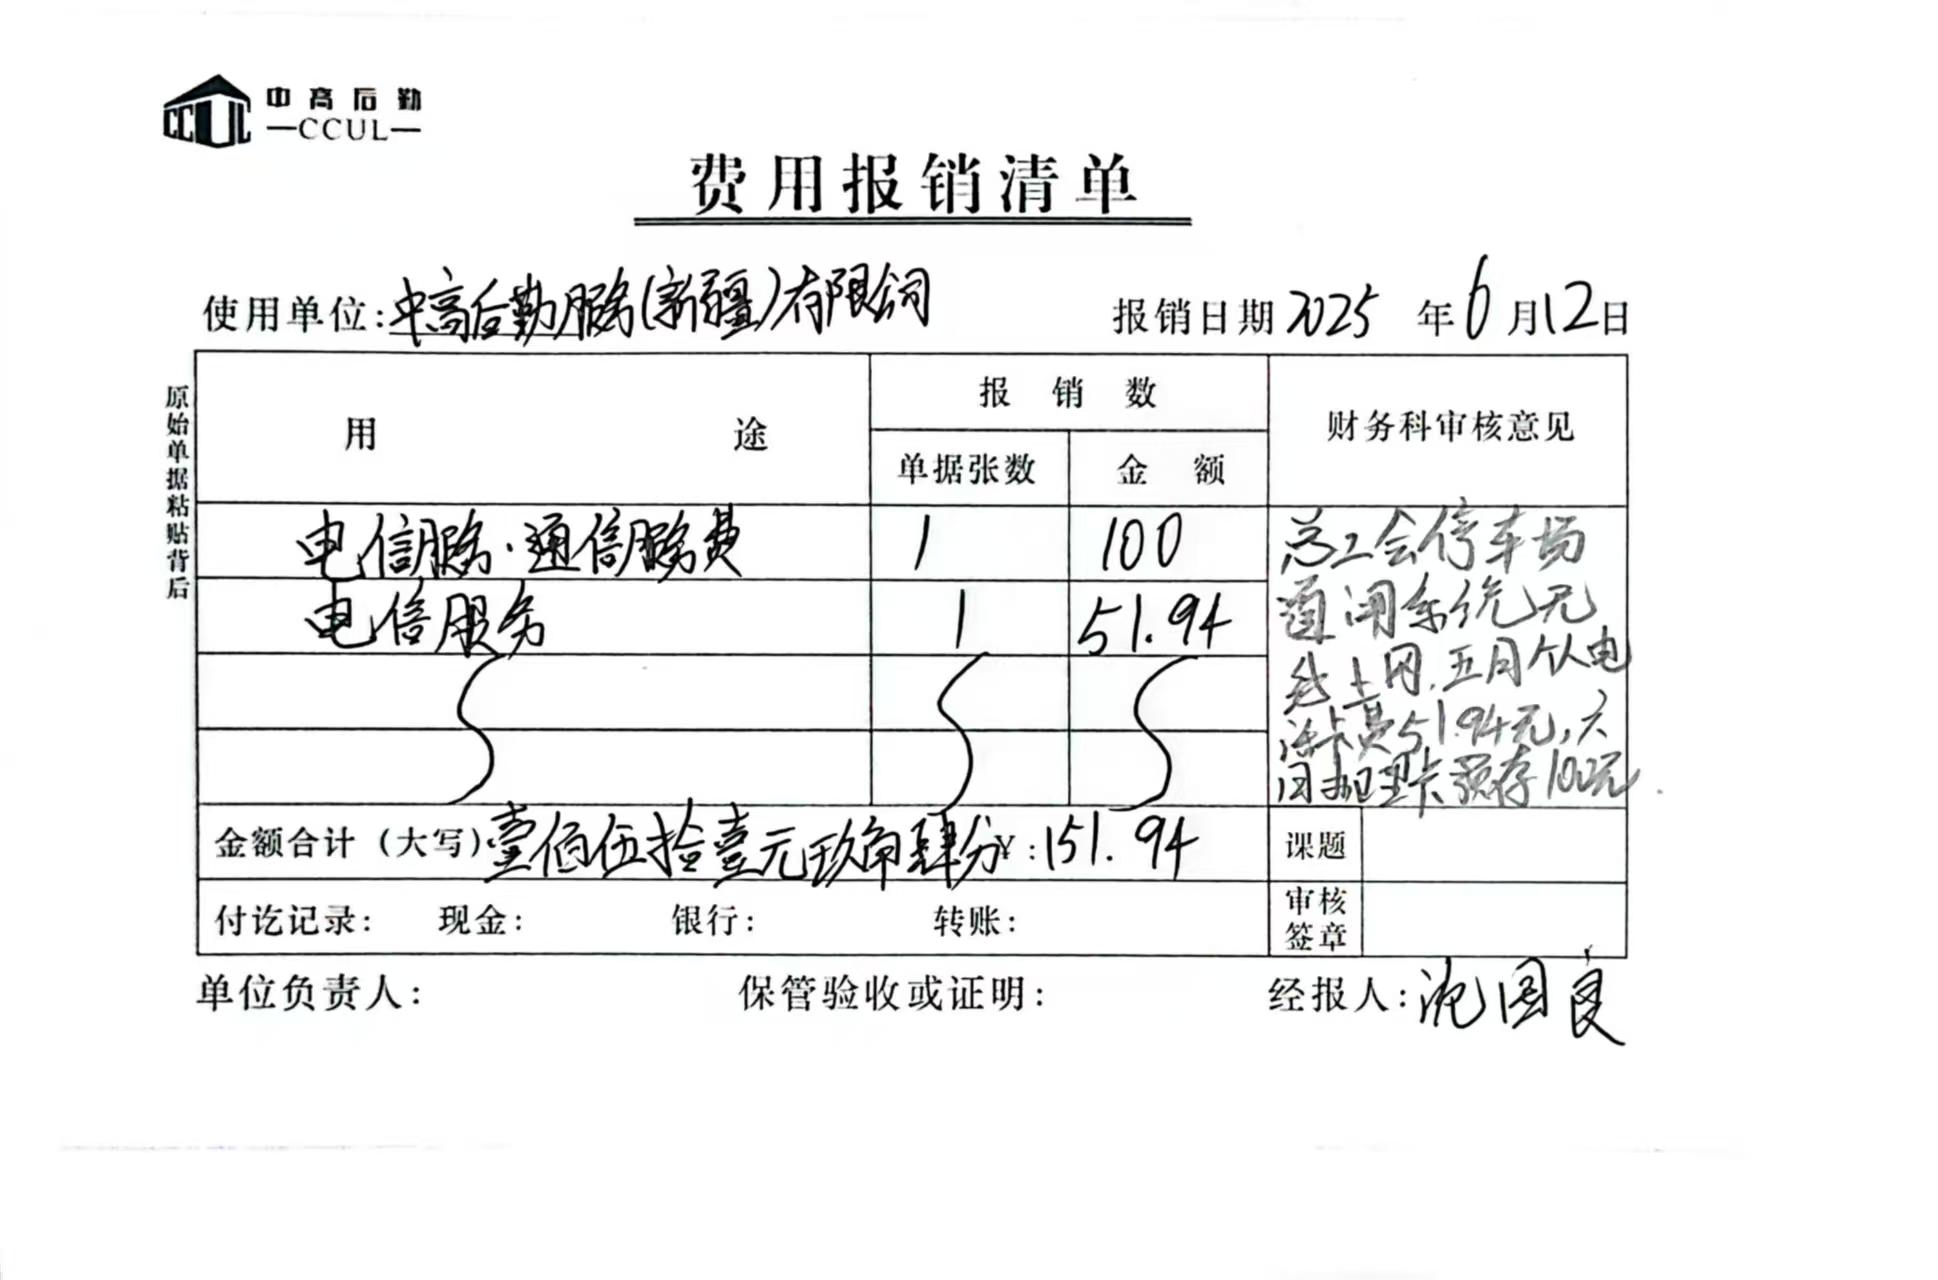 中高后勤
CCUL
费用报销清单
使用单位:中高后勤服务(新疆)有限公司
报销日期2025年6月12日
原始单据粘贴背后
用途
报销数
财务科审核意见
单据张数
金额
电信服务·通信服务费 1 100
电信服务 1 51.94
总工会停车场
道闸系统无
线上网,五月个人电
话卡费51.94元,六
月办理卡预存100元
金额合计(大写)壹佰伍拾壹元玖角肆分¥:151.94
课题
付讫记录: 现金: 银行: 转账:
审核
签章
单位负责人: 保管验收或证明: 经报人:沈国良